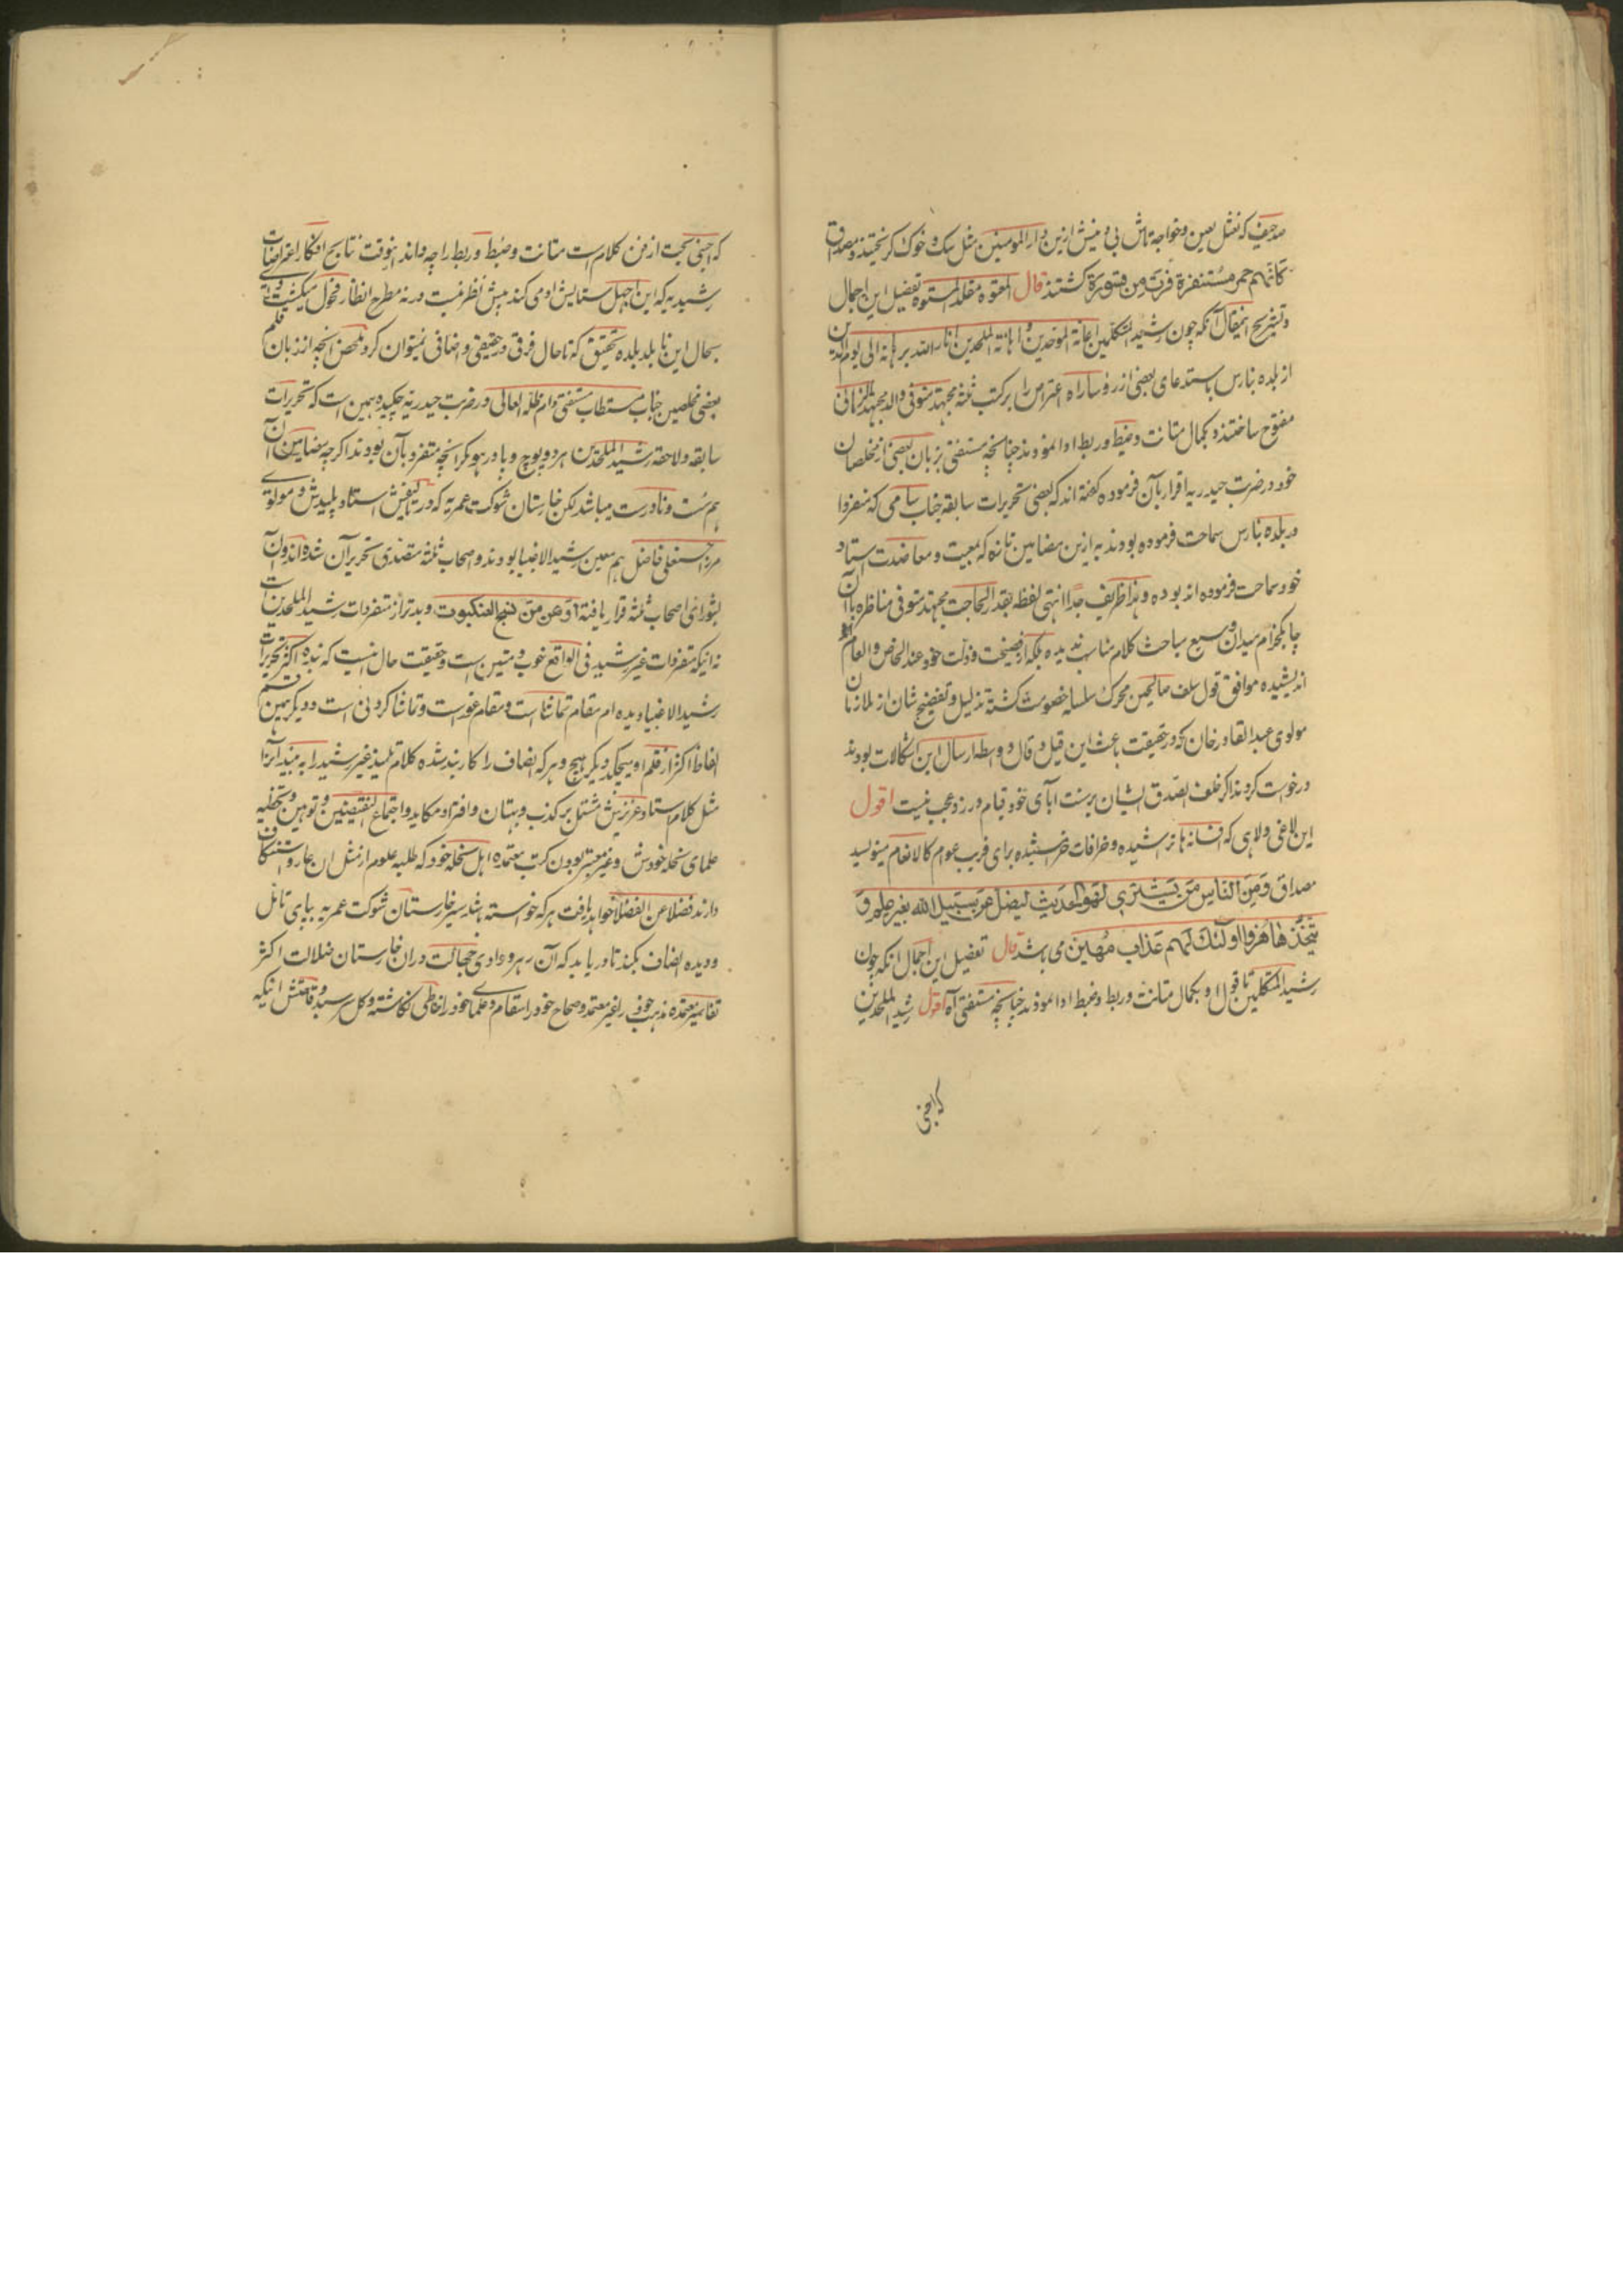 صدحیف که نعثل لعین و خواجه تاش بی دینش ازین دار المومنین مثل سک و خوک کریختند و مصداق
کانهم حمر مستنفرة فرت من قسورة کشتند قال المعتوه مقلد المشوه تفصیل این اجمال
و تشریح این مقال آنکه چون رشید المتکلمین اعانة الموحدین و اهانة الملحدین انار الله برهانه الی یوم الدین
از بلده بنارس باستدعای بعضی از رؤسا راه اعتراض را بر کتب ثلثه مجتهد متوفی والد مجتهد الزمانی
مفتوح ساختند و بکمال متانت و ضبط و ربط ادا نمودند چنانچه مستفتی بزبان بعضی از مخلصان
خود در ضربت حیدریه اقرار بآن فرموده کفته اند که بعضی تحریرات سابقه جناب سامی که منفردا
در بلده بنارس سماحت فرموده بودند به ازین مضامین تازه که بمعیت و معاضدت استاد
خود سماحت فرموده اند بوده و هذا ظریف جدا انتهی لفظه بقدر الحاجت مجتهد متوفی مناظره با آن
چابکخرام میدان وسیع مباحث کلام مناسب ندیده بلکه از فضیحت و ذلت خود عند الخاص و العام
اندیشیده موافق قول سلف صالحین محرک سلسله خصومت کشته تذلیل و تفضیح شان از ملازمان
مولوی عبد القادر خان که در حقیقت باعث این قیل و قال و واسطه ارسال این اشکالات بودند
درخواست کردند اکر خلف الصدق ایشان بر سنت آبای خود قیام ورزد عجب نیست اقول
این لاغی ولاهی که افسانه ها تراشیده و خرافات خراشیده برای فریب عوام کالانعام مینویسد
مصداق و من الناس من یشتری لهو الحدیث لیضل عن سبیل الله بغیر علم و
یتخذها هزوا اولئک لهم عذاب مهین می باشد قال تفصیل این اجمال آنکه چون
رشید المتکلمین تا قول او بکمال متانت و ربط و ضبط ادا نمودند چنانچه مستفتی آه اقول رشید الملحدین
که اجنبی
که اجنبی بحت از فن کلام است متانت و ضبط و ربط را چه داند اینوقت نتایج افکار اعتراضات
رشیدیه که این اجهل ستایش او می کند پیش نظر نیست ورنه مطرح انظار فحول میکشت
بحال این نابلد بلده تحقیق که تا حال فرق در حقیقی و اضافی نمیتوان کرد ملخص آنچه از زبان قلم
بعضی مخلصین جناب مستطاب مستفتی دام ظله العالی در ضربت حیدریه چکیده همین است که تحریرات
سابقه و لاحقه رشید الملحدین هر دو پوچ و پا در هوا مکر آنچه متفرد بآن بودند اکرچه مضامین آن
هم سست و نادرست میباشد لکن خارستان شوکت عمریه که در تالیفش استاد پلیدش و مولوی
مرزا حسنعلی فاضل هم معین رشید الاغبیا بودند و اصحاب ثلثه متصدی تحریر آن شده اند و آن
بشورای اصحاب ثلثه قرار یافته اوهن من نسج العنکبوت و بدتر از متفردات رشید الملحدین است
نه اینکه متفردات غیر رشید فی الواقع خوب و متین است و حقیقت حال اینست که بنده اکثر تحریرات
رشید الاغبیا دیده ام مقام تماشا است و مقام غور است و تماشا کردنی است و دیکر همین قسم
الفاظ اکثر از قلم او میچکد دیکر هیچ و هر که انصاف را کار بند شده کلام تلمیذ غیر رشید را به بیند آنرا
مثل کلام استاد عزیزش مشتمل بر کذب و بهتان و افترا و مکاید و اجتماع النقیضین و توهین و تخطیه
علمای نحله خودش و غیر معتبر بودن کتب معتمده اهل نحله خود که طلبه علوم از مثل آن عار و استنکاف
دارند فضلا عن الفضلا خواهد یافت هر که خواسته باشد سیر خارستان شوکت عمریه بپای تامل
و دیده انصاف بکند تا دریابد که آن رهرو وادی جهالت در ان خارستان ضلالت اکثر
تفاسیر معتمده مذهب خود را غیر معتمد و صحاح خود را سقام و علما خود را خاطی انکاشته و کل رسید وقاحتش اینکه